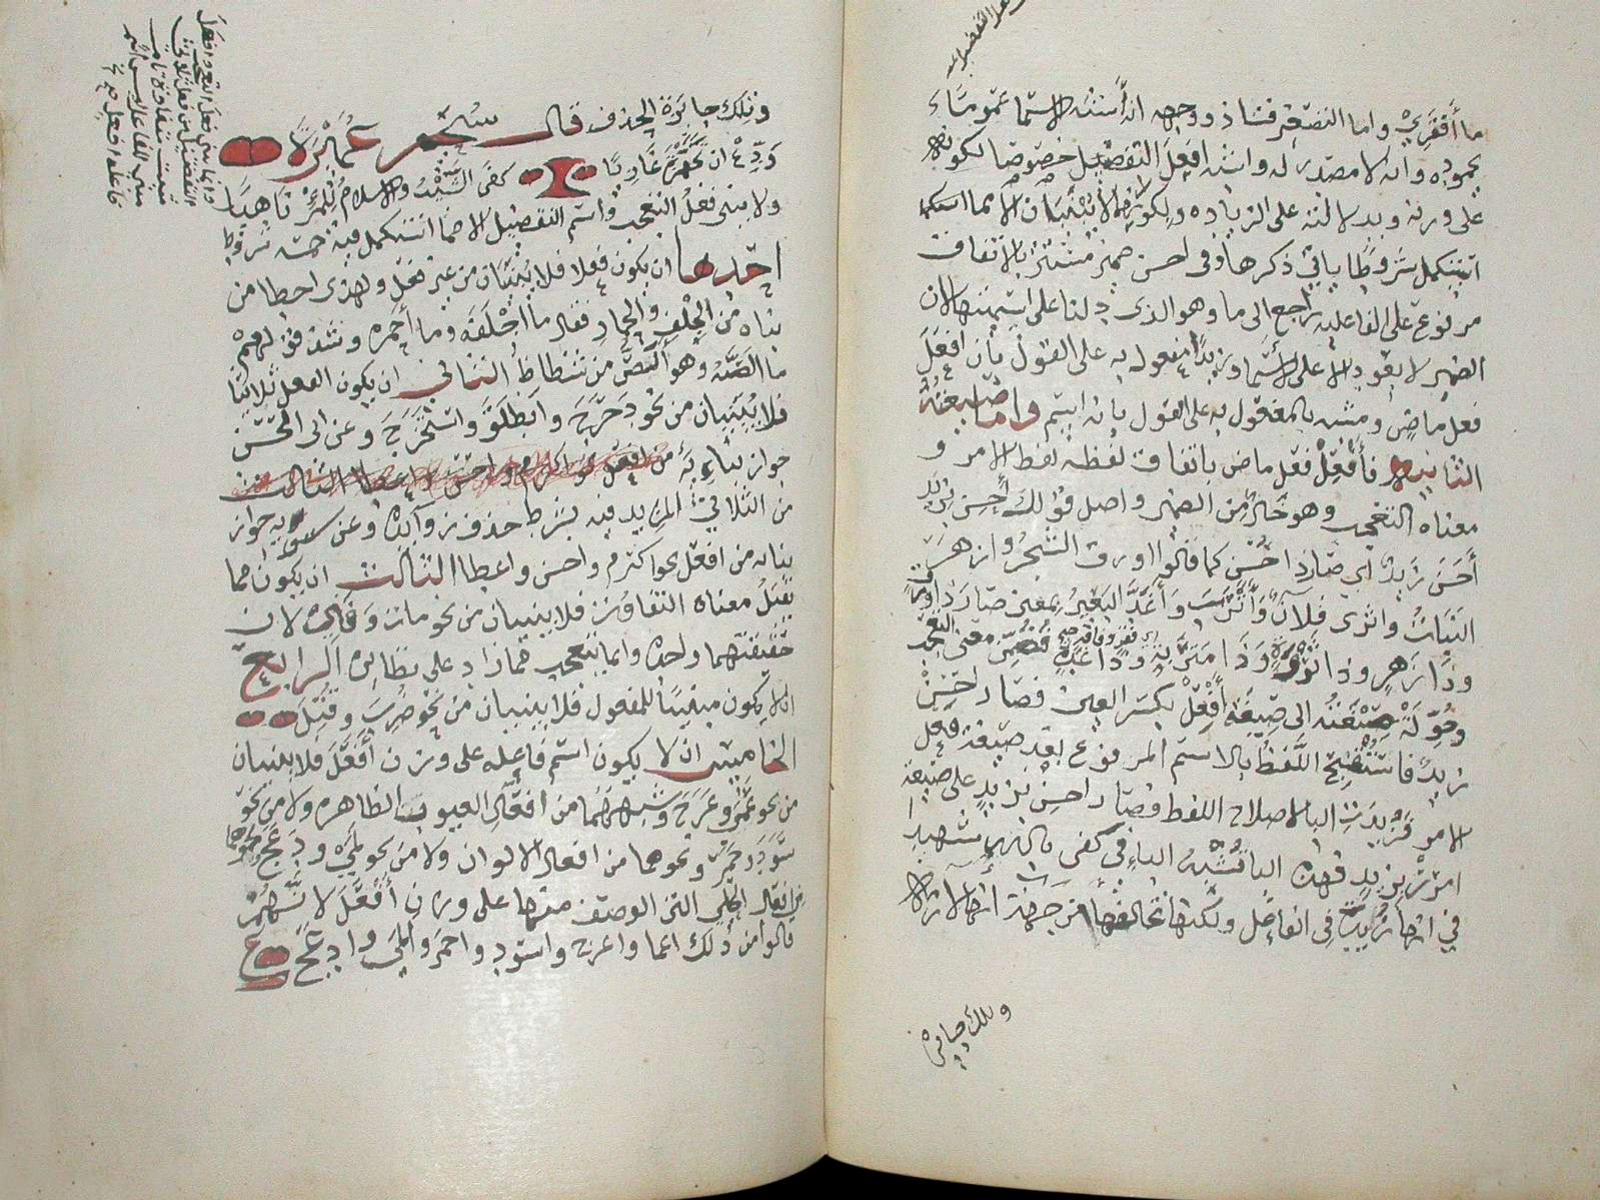 ما أفقرني واما التصغير فشاذ ووجهه انه أشبه الاسما عموما
بجموده وانه لا مصدر له واشبه افعل التفضيل خصوصا لكونه
على وزنه وبدلالته على الزيادة ولكونهما لا يبنيان الا مما استكمل
شروطا يأتي ذكرها وفي احسن ضمير مستتر بالاتفاق
مرفوع على الفاعلية راجع الى ما وهو الذي دلنا على اسميتها لان
الضمير لا يعود الا على الاسما وزيدا مفعول به على القول بأن افعل
فعل ماض ومشبه بالمفعول به على القول بانه اسم واما الصيغة
الثانية فأفعل فعل ماض باتفاق لفظه لفظ الامر و
معناه التعجب وهو خال من الضمير واصل قولك أحسن بزيد
أحسن زيد اي صار ذا حسن كما قالوا اورق الشجر وازهر
النبات واثرى فلان وأترب وأغد البعير بمعنى صار ذا ورق
وذا زهر وذا ثروة وذا متربة اي فقر وفاقة وذا غدة فضمن معنى التعجب
وحولت صيغته الى صيغة أفعل بكسر العين فصار احسن
زيد فاستقبح اللفظ بالاسم المرفوع بعد صيغة فعل
الامر فزيدت البا لاصلاح اللفظ فصار احسن بزيد على صيغة
امرر بزيد فهذه البا تشبه الباء في كفى بالله شهيدا
في انها زيدت في الفاعل ولكنها تخالفها من جهة انها لازمة
وتلك جائزة
وتلك جايزة الحذف قال سحيم عميرة
ودع ان تجهزت غاديا كفى الشيب والاسلام للمرء ناهيا
ولا يبنى فعل التعجب واسم التفضيل الا مما استكمل فيه خمسة شروط
احدها ان يكون فعلا فلا يبنيان من غير فعل ولهذا خطا من
بناه من الجلف والحمار فقال ما اجلفه وما أحمره وشذ قولهم
ما الصه وهو ألص من شظاظ الثاني ان يكون الفعل ثلاثيا
فلا يبنيان من نحو دحرج وانطلق واستخرج وعن ابي الحسن
جواز بنائه من
من الثلاثي المزيد فيه بشرط حذف زوائده وعن سيبويه جواز
بنائه من افعل نحو اكرم واحسن واعطا الثالث ان يكون مما
يقبل معناه التفاوت فلا يبنيان من نحو مات وفني لان
حقيقتهما واحدة وانما يتعجب مما زاد على نظائره الرابع
ان لا يكون مبنيا للمفعول فلا يبنيان من نحو ضرب وقتل
الخامس ان لا يكون اسم فاعله على وزن أفعل فلا يبنيان
من نحو عمي وعرج وشبههما من افعال العيوب الظاهره ولا من نحو
سود وحمر ونحوهما من افعال الالوان ولا من نحو لمي ودعج ونحوهما
من افعال الحلي التي الوصف منها على وزن أفعل لانهم
قالوا من ذلك اعما واعرج واسود واحمر والمى وادعج